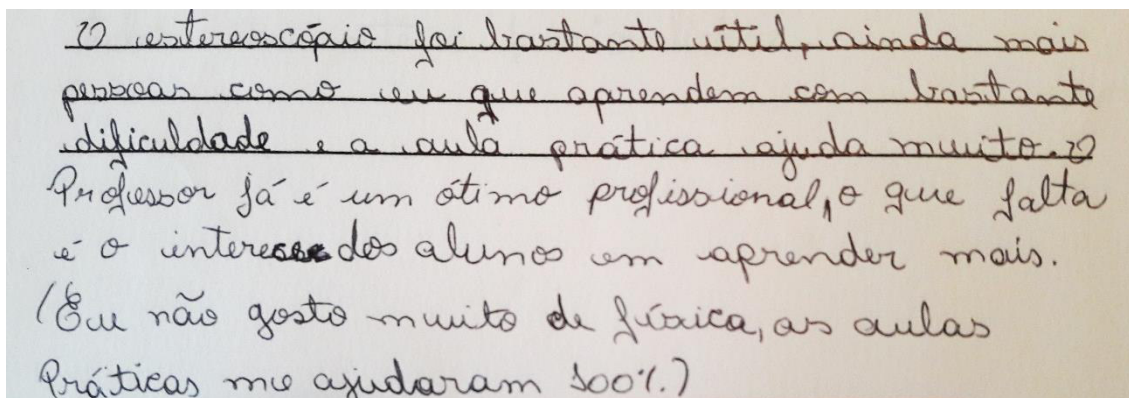 O estereoscópio foi bastante útil, ainda mais
pessoas como eu que aprendem com bastante
dificuldade e a aula prática ajuda muito. O
Professor já é um ótimo profissional, o que falta
é o interesse dos alunos em aprender mais.
(Eu não gosto muito de física, as aulas
Práticas me ajudaram 100%.)